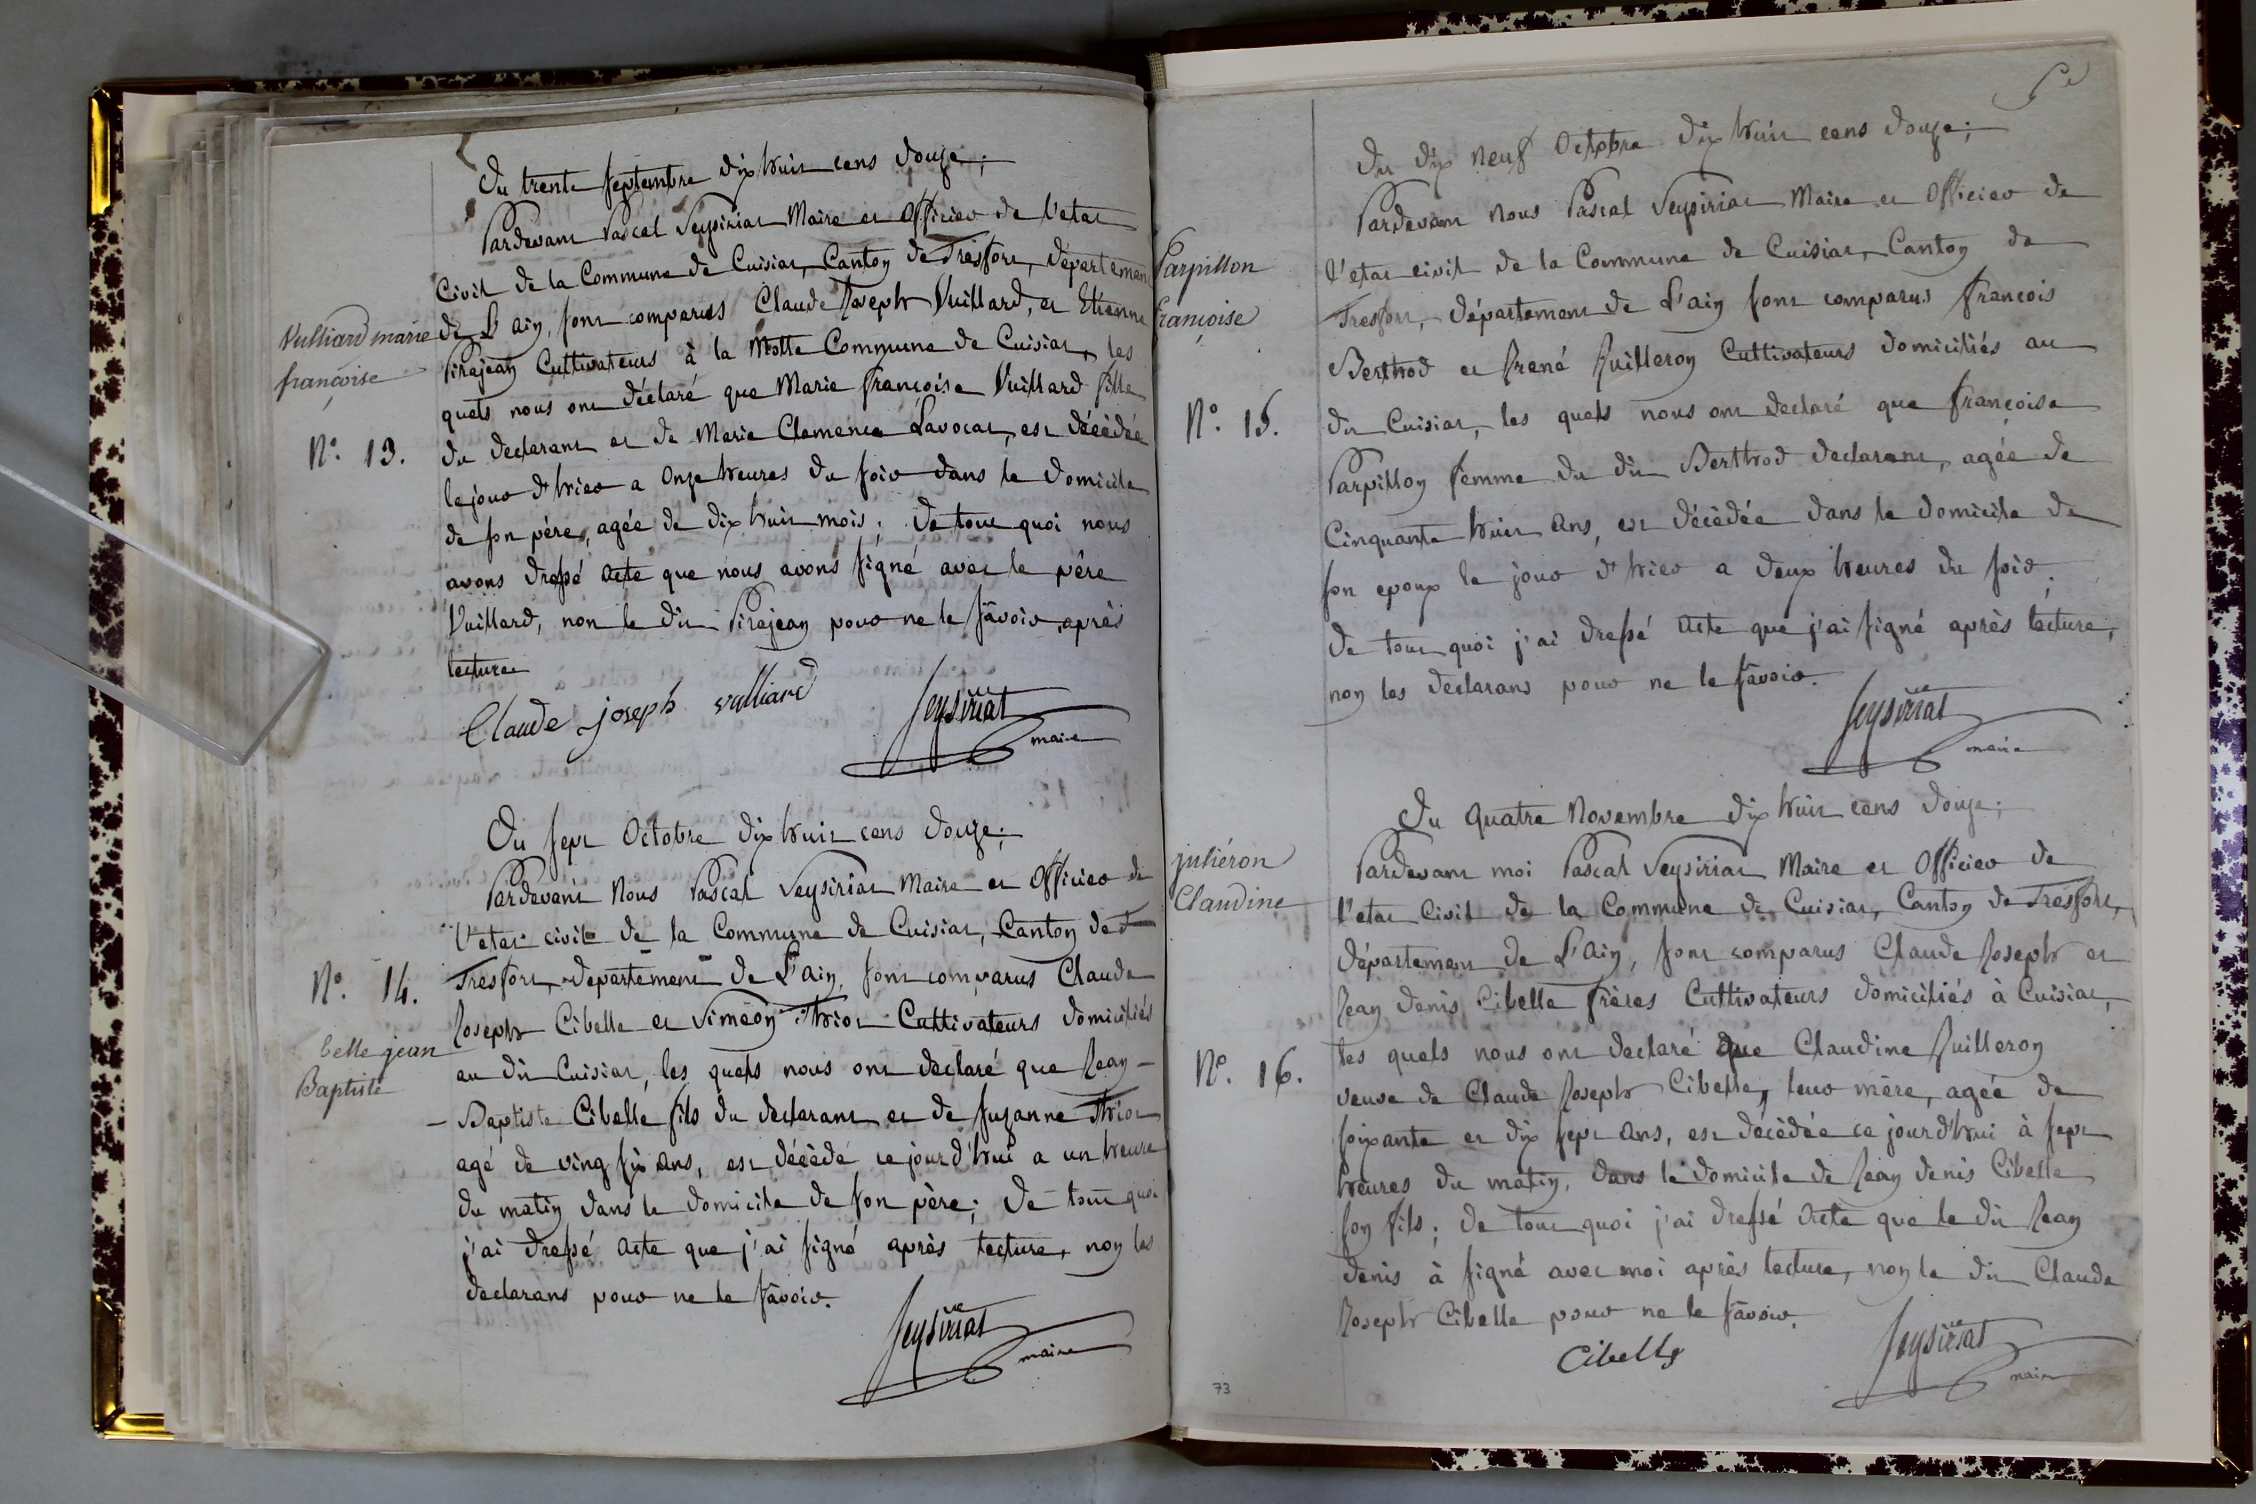 Du trente septembre dix huit cens douze;
Pardevant Pascal Seysiriat Maire et Officier de l'etat
Civil de la Commune de Cuisiat, Canton de Tresfort, département
Vulliard marie
françoise
de L'ain, sont comparus Claude Joseph Vuillard, et Etienne
Pirajean Cultivateurs à la Motte Commune de Cuisiat, les
quels nous ont déclaré que Marie françoise Vuillard fille
N.º 13.
du declarant et de Marie Clemence Lavocat, est décédée
le jour d'hier a onze heures du soir dans le domicile
de son pére, agée de dix huit mois; de tout quoi nous
avons dressé acte que nous avons signé avec le pére
Vuillard, non le dit Pirajean pour ne le sâvoir, après
lecture
Claude joseph vulliard
Seysiriat
maire
Du sept Octobre dix huit cens douze;
Pardevant Nous Pascal Seysiriat Maire et Officier de
l'etat civil de la Commune de Cuisiat, Canton de
N.º 14.
Tresfort, departement de L'ain, sont comparus Claude
Joseph Cibelle et Siméon Thiot Cultivateurs domiciliés
belle jean
Baptiste
au dit Cuisiat, les quels nous ont declaré que Jean-
-Baptiste Cibelle fils du declarant et de Suzanne Thiot
agé de ving six ans, est décédé ce jourd'hui a un heure
du matin dans le domicile de son père; de tout quoi
j'ai dressé acte que j'ai signé après lecture, non les
declarans pour ne le sâvoir.
Seysiriat
maire
Du dix neuf Octobre dix huit cens douze;
Pardevant Nous Pascal Seysiriat Maire et Officier de
Parpillon
françoise
l'etat civil de la Commune de Cuisiat, Canton de
Tresfort, département de L'ain sont comparus françois
Berthod et frené Juilleron Cultivateurs domiciliés au
N.º 15.
dit Cuisiat, les quels nous ont declaré que françoise
Parpillon femme du dit Berthod declarant, agée de
Cinquante huit ans, est décédée dans le domicile de
son epoux le jour d'hier a deux heures du soir;
de tout quoi j'ai dressé acte que j'ai signé après lecture,
non les declarans pour ne le sâvoir.
Seysiriat
maire
Du quatre Novembre dix huit cens douze;
juliéron
Claudine
Pardevant moi Pascal Seysiriat Maire et Officier de
l'etat Civil de la Commune de Cuisiat, Canton de Tresfort,
département de L'Ain, sont comparus Claude Joseph et
Jean denis Cibelle frères Cultivateurs domiciliés à Cuisiat,
N.º 16.
les quels nous ont declaré que Claudine Juilleron
veuve de Claude Joseph Cibelle, leur mère, agée de
soixante et dix sept ans, est décédée ce jourd'hui à sept
heures du matin, dans le domicile de Jean denis Cibelle
son fils; de tout quoi j'ai dressé acte que le dit Jean
denis à signé avec moi après lecture, non le dit Claude
Joseph Cibelle pour ne le sâvoir.
Cibelle
Seysiriat
maire
73